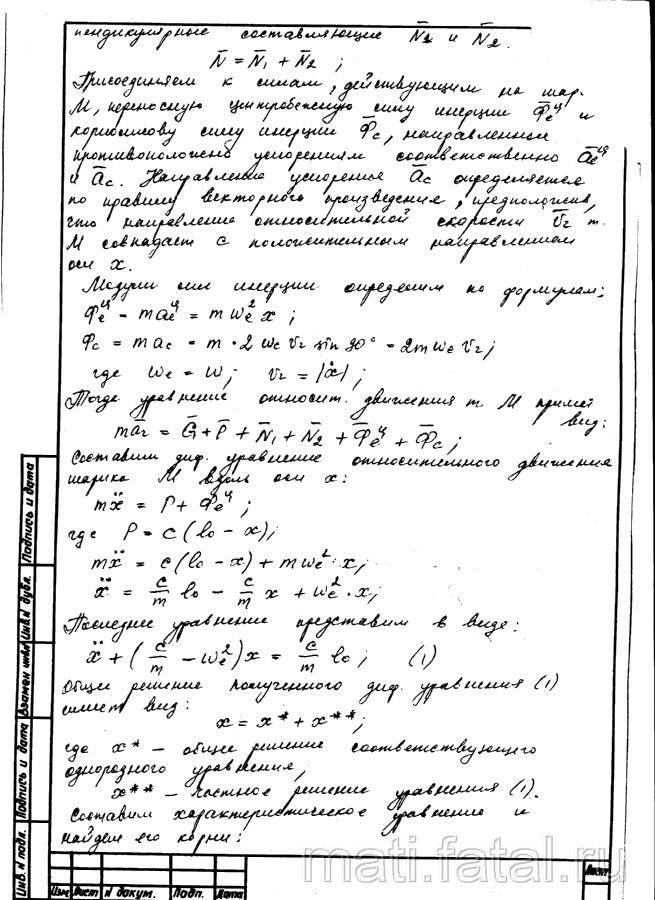 пендикулярные составляющие N̄1 и N̄2.
N̄ = N̄1 + N̄2 ;
Присоединяем к силам, действующим на шар.
М, переносную центробежную силу инерции Φ̄eц и
кориолисову силу инерции Φ̄c, направленные
противоположно ускорениям соответственно āeц
и āc. Направление ускорения āc определяется
по правилу векторного произведения, предположив,
что направление относительной скорости v̄r т.
М совпадает с положительным направлением
оси x.
Модули сил инерции определим по формулам:
Φeц = maeц = mωe²x ;
Φc = mac = m · 2ωe vr sin 90° = 2mωe vr ;
где ωe = ω ; vr = |ẋ| ;
Тогда уравнение относит. движения т М примет
вид:
mār = Ḡ + P̄ + N̄1 + N̄2 + Φ̄eц + Φ̄c ;
Составим диф. уравнение относительного движения
шарика М вдоль оси x:
mẍ = P + Φeц ;
где P = c(l0 − x) ;
mẍ = c(l0 − x) + mωe² · x ;
ẍ = c/m l0 − c/m x + ωe² · x ;
Последнее уравнение представим в виде:
ẍ + (c/m − ωe²)x = c/m l0 ; (1)
Общее решение полученного диф. уравнения (1)
имеет вид:
x = x* + x** ;
где x* – общее решение соответствующего
однородного уравнения,
x** – частное решение уравнения (1).
Составим характеристическое уравнение и
найдем его корни:
Подпись и дата
Инв.№ дубл.
Взамен инв№
Подпись и дата
Инв. № подл.
Изм Лист № докум. Подп. Дата
Лист
mati.fatal.ru